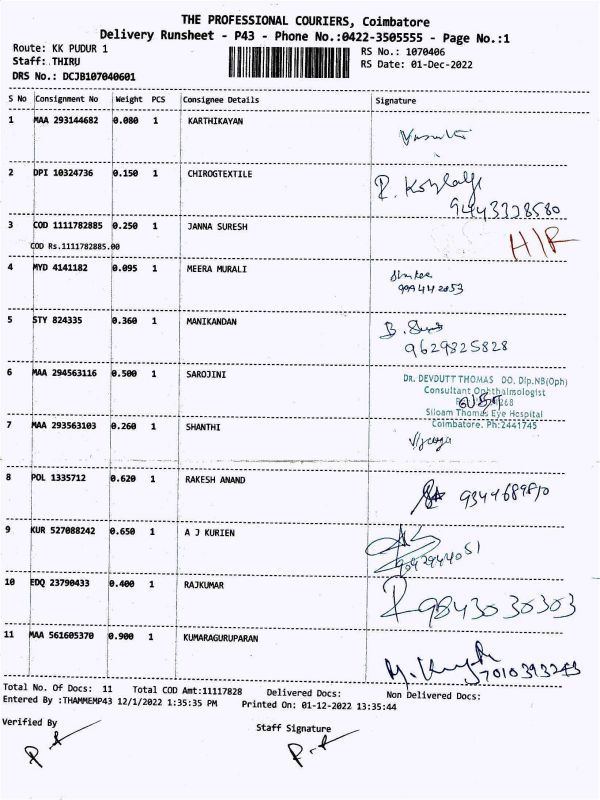 THE PROFESSIONAL COURIERS, Coimbatore
Delivery Runsheet - P43 - Phone No.:0422-3505555 - Page No.:1
Route: KK PUDUR 1
RS No.: 1070406
Staff: THIRU
RS Date: 01-Dec-2022
DRS No.: DCJB107040601
S No Consignment No Weight PCS Consignee Details Signature
1 MAA 293144682 0.080 1 KARTHIKAYAN
2 DPI 10324736 0.150 1 CHIROGTEXTILE
9443328580
3 COD 1111782885 0.250 1 JANNA SURESH
H/R
COD Rs.1111782885.00
4 MYD 4141182 0.095 1 MEERA MURALI
5 STY 824335 0.360 1 MANIKANDAN
9629825828
6 MAA 294563116 0.500 1 SAROJINI
DR. DEVDUTT THOMAS DO. Dip.NB(Oph)
Consultant Ophthalmologist
Siloam Thomas Eye Hospital
Coimbatore. Ph:2441745
7 MAA 293563103 0.260 1 SHANTHI
8 POL 1335712 0.620 1 RAKESH ANAND
9 KUR 527088242 0.650 1 A J KURIEN
10 EDQ 23790433 0.400 1 RAJKUMAR
9843030303
11 MAA 561605370 0.900 1 KUMARAGURUPARAN
Total No. Of Docs: 11 Total COD Amt:11117828 Delivered Docs: Non Delivered Docs:
Entered By :THAMMEMP43 12/1/2022 1:35:35 PM Printed On: 01-12-2022 13:35:44
Verified By
Staff Signature